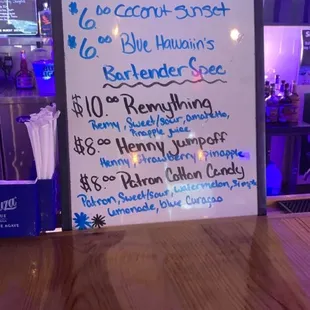 $6.00 Coconut Sunset
$6.00 Blue Hawaiin's
Bartender Spec
$10.00 Remything
Remy, Sweet/sour, amaretto,
Pinapple juice
$8.00 Henny Jumpoff
Henny, Strawberry, pinapple
$8.00 Patron Cotton Candy
Patron, Sweet/sour, watermelon, Simple
lemonade, blue Curaçao